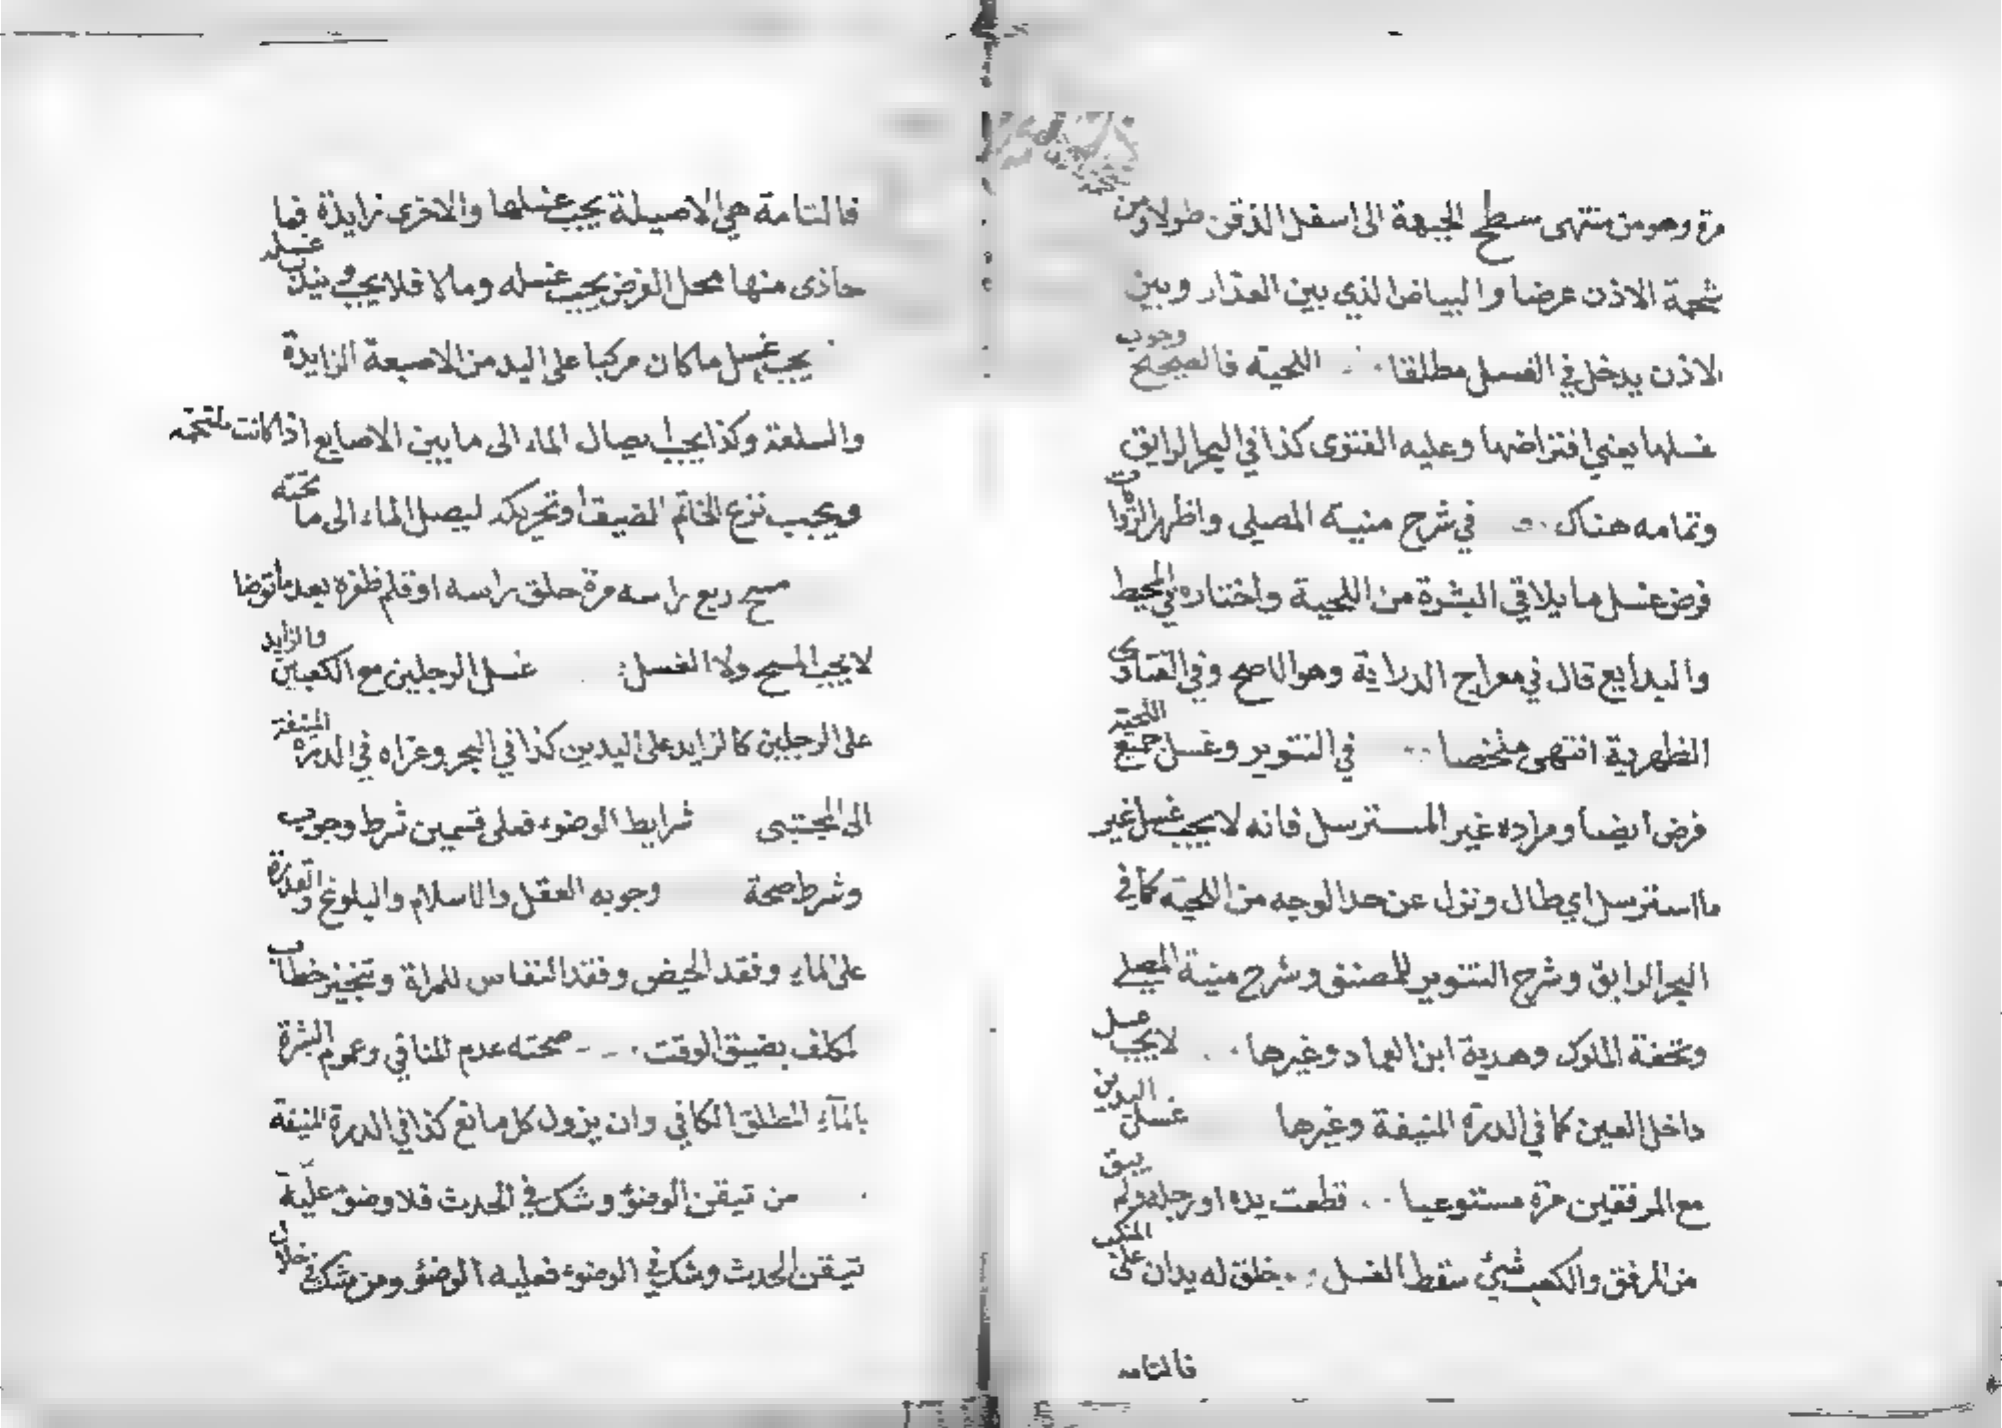 مرة وهو من منتهى سطح الجبهة الى اسفل الذقن طولا ومن
شحمة الاذن عرضا والبياض الذي بين العذار وبين
الاذن يدخل في الغسل مطلقا اللحية فالصحيح وجوب
غسلها يعني افتراضها وعليه الفتوى كذا في البحر الرايق
وتمامه هناك و في شرح منية المصلي واظهر الروايات
فرض غسل ما يلاقي البشرة من اللحية واختاره في المحيط
والبدايع قال في معراج الدراية وهو الاصح وفي الفتاوى
الظهرية انتهى ملخصا في التنوير وغسل جميع اللحية
فرض ايضا ومراده غير المسترسل فانه لا يجب غسل غير
ما استرسل اي طال ونزل عن حد الوجه من اللحية كما في
البحر الرايق وشرح التنوير للمصنف وشرح منية المصلي
وتحفة الملوك وهدية ابن العماد وغيرها لا يجب غسل
داخل العين كما في الدرة المنيفة وغيرها غسل اليدين
مع المرفقين مرة مستوعبا قطعت يده او رجله ولم يبق
من المرفق والكعب شئ سقط الغسل خلق له يدان على المنكب
فالتامه
فالتامة هي الاصيلة يجب غسلها والاخرى زايدة فما
حاذى منها محل الفرض يجب غسله وما لا فلا يجب ويندب غسله
يجب غسل ما كان مركبا على اليد من الاصبعة الزايدة
والسلعة وكذا يجب ايصال الماء الى ما بين الاصابع اذا كانت ملتحمة
ويجب نزع الخاتم الضيق او تحريكه ليصل الماء الى ما تحته
مسح ربع راسه مرة حلق راسه او قلم ظفره بعد ما توضا
لا يجب المسح ولا الغسل غسل الرجلين مع الكعبين والزايد
على الرجلين كالزايد على اليدين كذا في البحر وعزاه في الدرة المنيفة
الى المجتبى شرايط الوضوء فعلى قسمين شرط وجوب
وشرط صحة وجوبه العقل والاسلام والبلوغ والقدرة
على الماء وفقد الحيض وفقد النفاس للمراة وتنجيز خطاب
لمكلف بضيق الوقت صحته عدم المنافي وعموم البشرة
بالماء المطلق الكافي وان يزول كل مانع كذا في الدرة المنيفة
من تيقن الوضؤ وشك في الحدث فلا وضؤ عليه
تيقن الحدث وشك في الوضوء فعليه الوضؤ ومن شك في خلال